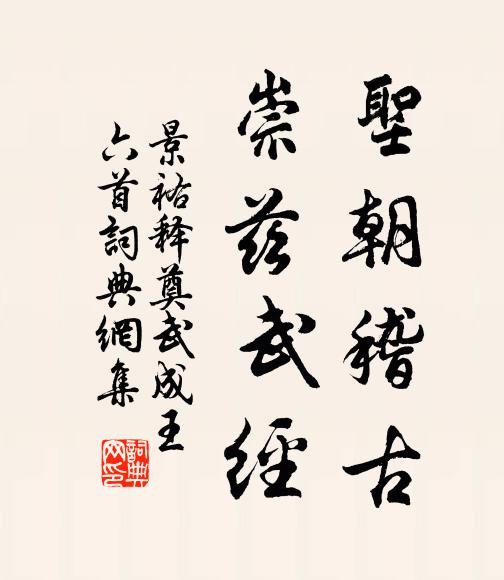 聖朝稽古
崇茲武經
景祐释奠武成王
六首詞典網集
詞典网印